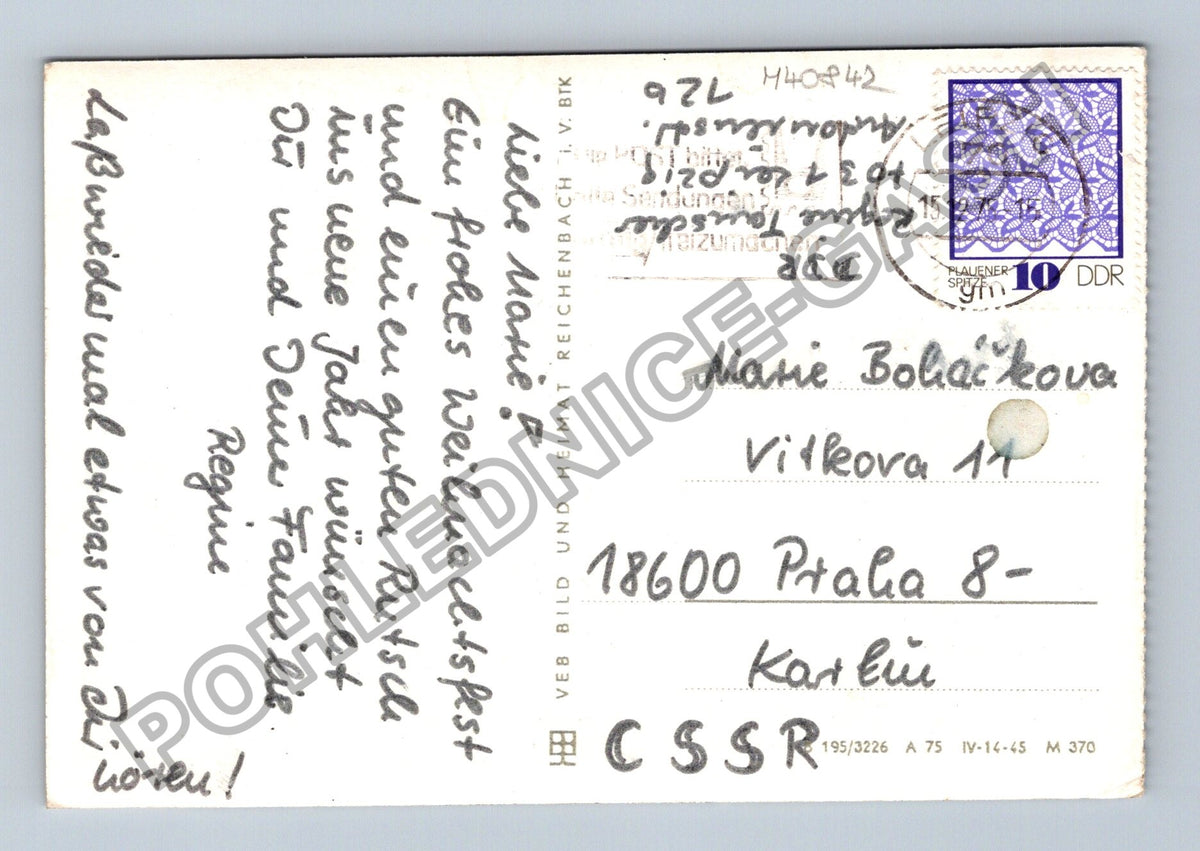 Liebe Marie!
Ein frohes Weihnachtsfest
und einen guten Rutsch
ins neue Jahr wünscht
Dir und Deiner Familie
Regine
Laß wieder mal etwas von Dir
hören!
VEB BILD UND HEIMAT REICHENBACH i. V. BTK
M40842
DDR
Regine Tauscher
7031 Leipzig
Antonienstr.
12b
PLAUENER
SPITZE 10 DDR
Marie Boháčkova
Vitkova 11
18600 Praha 8-
Karlin
CSSR
195/3226 A 75 IV-14-45 M 370
POHLEDNICE-GASH